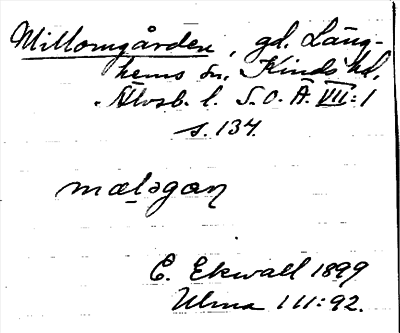 Millomgården, gd. Läng-
hems sn, Kinds hd,
Älvsb. l. S.O.Ä. VII:1
s. 134.
mæləgan
E. Ekwall 1899
Ulma 111:92.